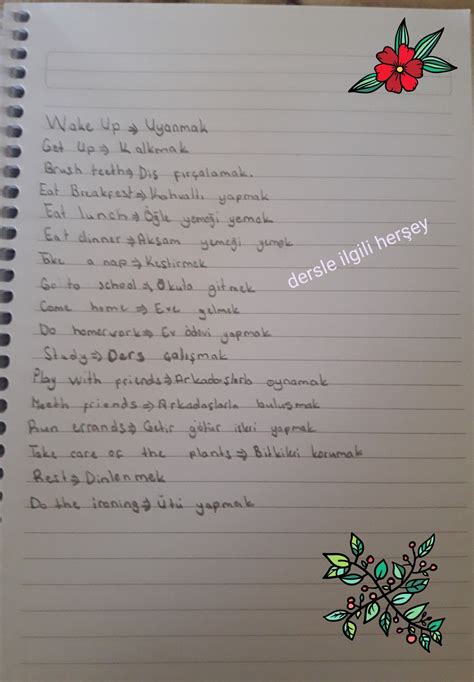 Wake Up ⇒ Uyanmak
Get Up ⇒ Kalkmak
Brush teeth ⇒ Diş fırçalamak.
Eat Breakfest ⇒ Kahvaltı yapmak
Eat lunch ⇒ Öğle yemeği yemek
Eat dinner ⇒ Akşam yemeği yemek
Take a nap ⇒ Kestirmek
Go to school ⇒ Okula gitmek
Come home ⇒ Eve gelmek
Do homework ⇒ Ev ödevi yapmak
Study ⇒ Ders çalışmak
Play with friends ⇒ Arkadaşlarla oynamak
Meeth friends ⇒ Arkadaşlarla buluşmak
Run errands ⇒ Getir götür işleri yapmak
Take care of the plants ⇒ Bitkileri korumak
Rest ⇒ Dinlenmek
Do the ironing ⇒ Ütü yapmak
dersle ilgili herşey